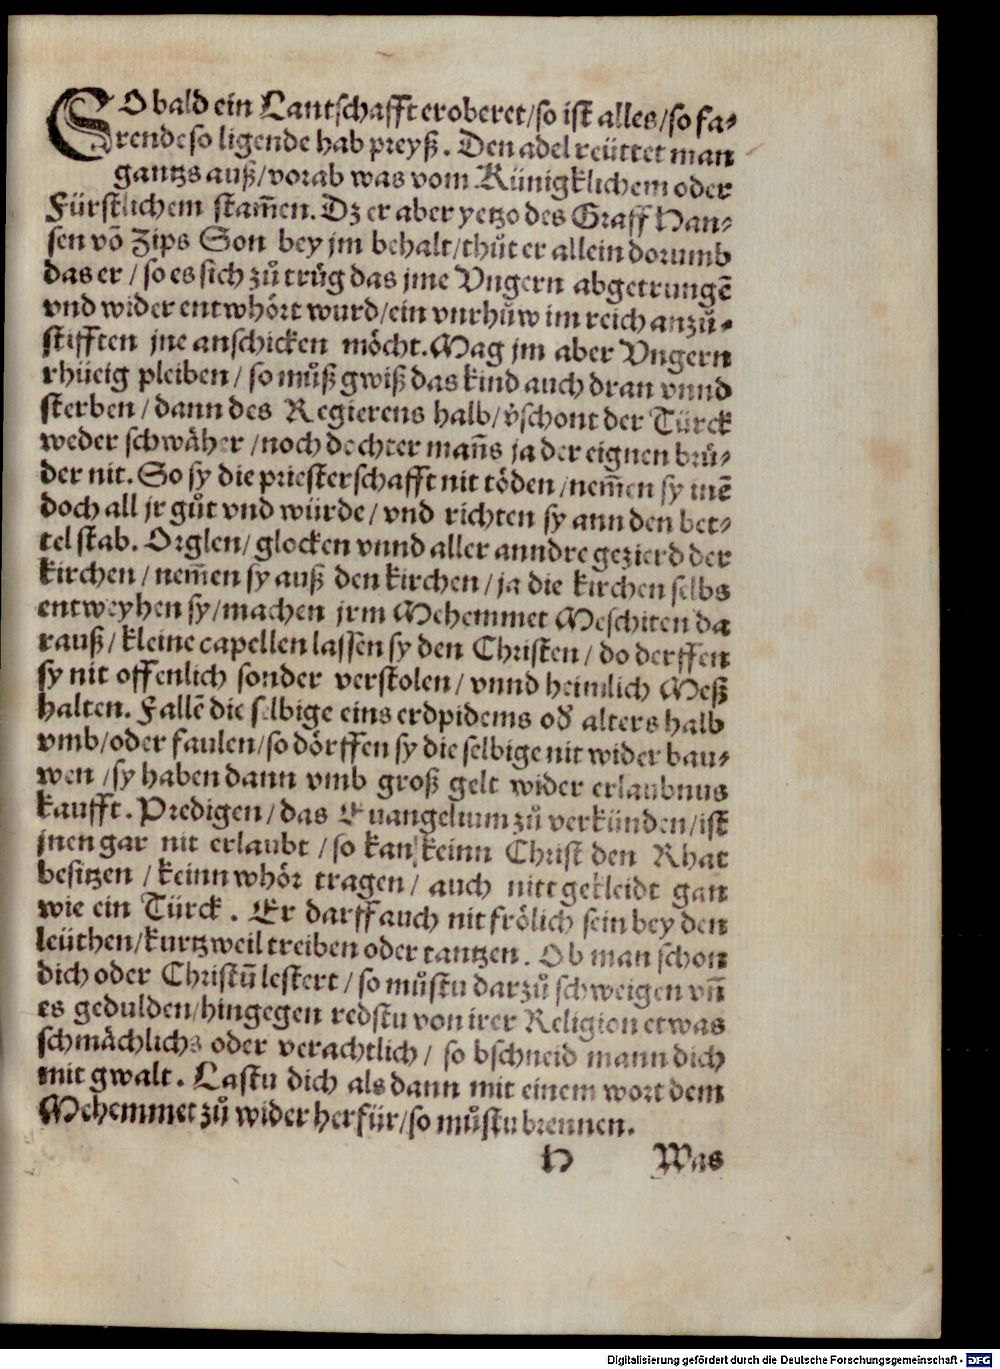 SO bald ein Lantschafft eroberet/so ist alles/so fa⸗
rende so ligende hab preyß. Den adel reüttet man
gantzs auß/vorab was vom Künigklichem oder
Fürstlichem stam̃en. Dz er aber yetzo des Graff Han⸗
sen võ Zips Son bey jm behalt/thůt er allein dorumb
das er / so es sich zů trüg das jme Vngern abgetrungẽ
vnd wider entwhört wurd/ein vnrhůw im reich anzů⸗
stifften jne anschicken möcht. Mag jm aber Vngern
rhüeig pleiben / so můß gwiß das kind auch dran vnnd
sterben / dann des Regierens halb/v̉schont der Türck
weder schwäher /noch dochter man̄s ja der eignen brů⸗
der nit. So sy die priesterschafft nit töden /nem̃en sy inẽ
doch all jr gůt vnd würde / vnd richten sy ann den bet⸗
tel stab. Orglen/ glocken vnnd aller anndre gezierd der
kirchen / nem̃en sy auß den kirchen / ja die kirchen selbs
entweyhen sy/machen jrm Mehemmet Meschiten da
rauß / kleine capellen lassen sy den Christen / do derffen
sy nit offenlich sonder verstolen / vnnd heimlich Meß
halten. Fallẽ die selbige eins erdpidems od̉ alters halb
vmb/oder faulen/so dörffen sy die selbige nit wider bau⸗
wen /sy haben dann vmb groß gelt wider erlaubnus
kaufft. Predigen / das Euangelium zů verkünden/ist
jnen gar nit erlaubt / so kan keinn Christ den Rhat
besitzen / keinn whör tragen / auch nitt gekleidt gan
wie ein Türck . Er darff auch nit frölich sein bey den
leüthen/kurtzweil treiben oder tantzen. Ob man schon
dich oder Christū lestert / so můstu darzů schweigen vn̄
es gedulden/hingegen redstu von irer Religion etwas
schmächlichs oder verachtlich / so bschneid mann dich
mit gwalt. Lastu dich als dann mit einem wort dem
Mehemmet zů wider herfür/so můstu brennen.
H Was
Digitalisierung gefördert durch die Deutsche Forschungsgemeinschaft - DFG